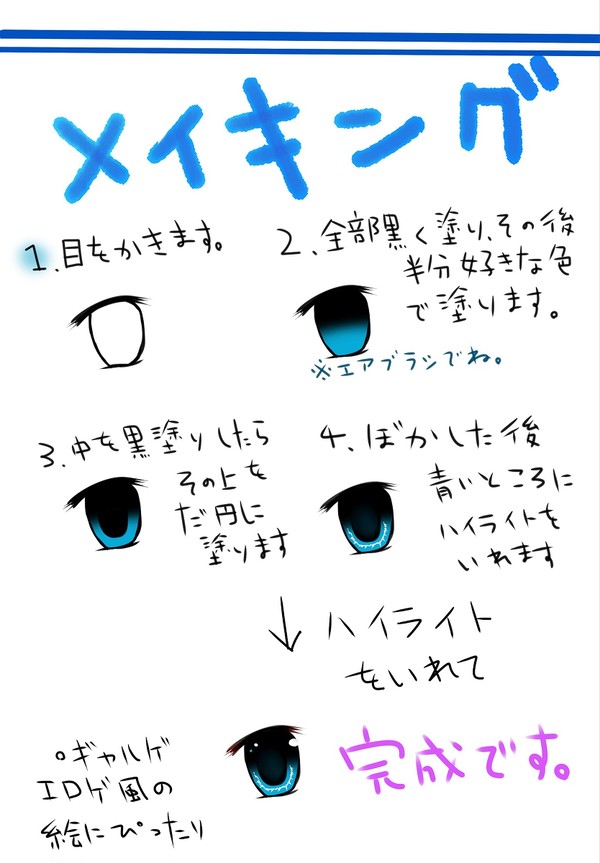 メイキング
1.目をかきます。
2.全部黒く塗り、その後
半分好きな色
で塗ります。
※エアブラシでね。
3.中を黒塗りしたら
その上を
だ円に
塗ります
4.ぼかした後
青いところに
ハイライトを
いれます
ハイライト
をいれて
完成です。
ギャルゲ
エロゲ風の
絵にぴったり